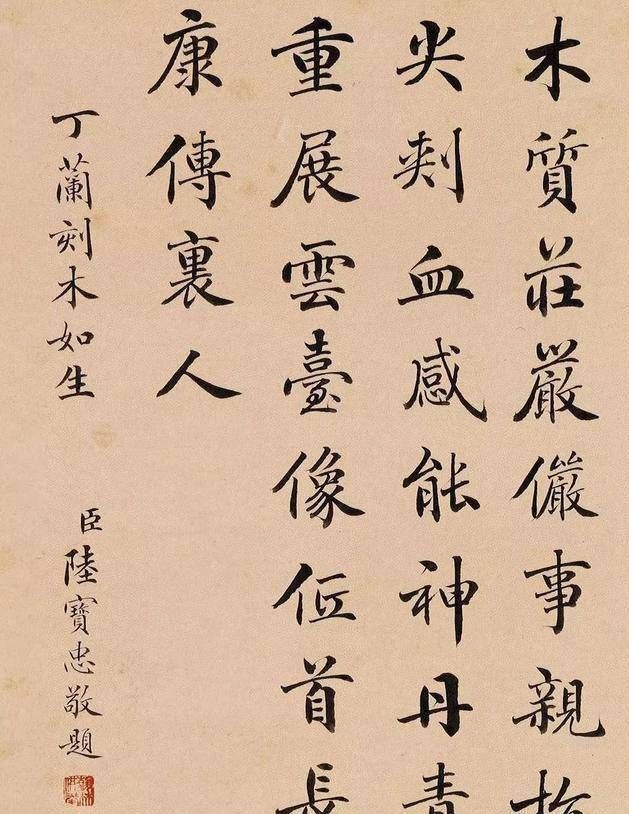 木質莊嚴儼事親指
尖刾血感能神丹青
重展雲臺像低首長
康傳裏人
丁蘭刻木如生
臣陸寶忠敬題